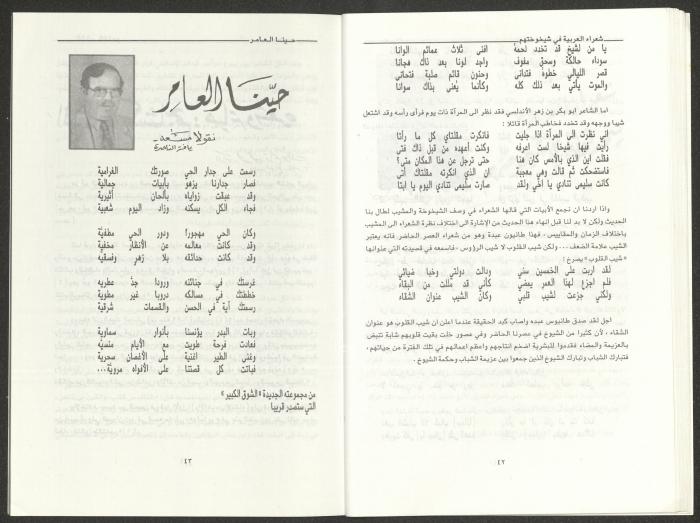 شعراء العربية في شيخوختهم
يا من لشيخ قد تخدد لحمه افنى ثلاث عمائم الوانا
سوداء حالكة وسحق مفوف واجد لونا بعد ذاك هجانا
قصر الليالي خطوه فتدانى وحنون قائم صلبه فتحانى
والموت يأتي بعد ذلك كله وكأنما يُعنى بذاك سوانا
اما الشاعر ابو بكر بن زهر الأندلسي فقد نظر الى المرآة ذات يوم فرأى رأسه وقد اشتعل
شيبا ووجهه وقد تخدد فخاطب المرآة قائلا :
اني نظرت الى المرآة اذا جليت فانكرت مقلتاي كل ما رأتا
رأيت فيها شيخا لست اعرفه وكنت أعهده من قبل ذاك فتى
فقلت اين الذي بالأمس كان هنا حتى ترحل عن هذا المكان متى؟
فاستضحكت ثم قالت وهي معجبة ان الذي انكرته مقلتاك أتى
كانت سليمى تنادي يا أخي ولقد صارت سليمى تنادي اليوم يا ابتا
واذا اردنا ان نجمع الأبيات التي قالها الشعراء في وصف الشيخوخة والمشيب لطال بنا
الحديث ولكن لا بد لنا قبل انهاء هذا الحديث من الإشارة الى اختلاف نظرة الشعراء الى المشيب
باختلاف الزمان والمقاييس ، فهذا طانيوس عبدة وهو من شعراء العصر الحاضر فانه يعتبر
الشيب علامة الضعف ... ولكن شيب القلوب لا شيب الرؤوس ، فاسمعه في قصيدته التي عنوانها
« شيب القلوب » يصرخ :
لقد اربت على الخمسين سني ودالت دولتي وخبا ضيائي
فلم اجزع لهذا العمر يمضي كأني قد مللت من البقاء
ولكني جزعت لشيب قلبي وكان الشيب عنوان الشقاء
اجل لقد صدق طانيوس عبده واصاب كبد الحقيقة عندما اعلن ان شيب القلوب هو عنوان
الشقاء ، لأن كثيرا من الشيوخ في عصرنا الحاضر وفي عصور خلت بقيت قلوبهم شابة تنبض
بالعزيمة والمضاء فقدموا للبشرية اضخم انتاجهم واعظم اعمالهم في تلك الفترة من حياتهم ،
فتبارك الشباب وتبارك الشيوخ الذين جمعوا بين عزيمة الشباب وحكمة الشيوخ .
٤٢
حينا العامر
حيّنا العامر
نقولا مسعد
يافة الناصرة
رسمت على جدار الحي صورتك الغرامية
فصار جدارنا يزهو بأبيات جمالية
وقد عبقت زواياه بألحان أثيرية
فجاء الكل يسكنه وزاد اليوم شعبية
وكان الحي مهجورا ودور الحي مطفيّة
وقد كانت معالمه عن الأنظار مخفية
وقد كانت حدائقه بلا زهر وفسقيه
غرستك في جنائنه ورودا جدّ عطريه
خططتك في مسالكه دروبا غير مطوية
رسمتك آية في الحسن والقسمات شرقية
وبات البدر يؤنسنا بأنوار سماوية
فعادت فرحة طويت مع الأيام منسيّة
وغنى الطير أغنية على الأغصان سحرية
فباتت كل قصتنا على الأفواه مروية...
من مجموعته الجديدة «الشوق الكبير»
التي ستصدر قريبا
٤٣